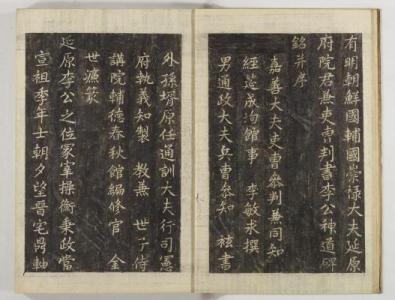 有明朝鮮國輔國崇祿大夫延原
府院君兼吏曹判書李公神道碑
銘并序
嘉善大夫吏曹參判兼同知
經筵成均館事 李敏求撰
男通政大夫兵曹參知 袨書
外孫壻原任通訓大夫行司憲
府執義知製 教兼 世子侍
講院輔德春秋館編修官 金
世濂篆
延原李公之位冢宰操衡秉政當
宣祖季年士朝夕望晉宅鼎軸